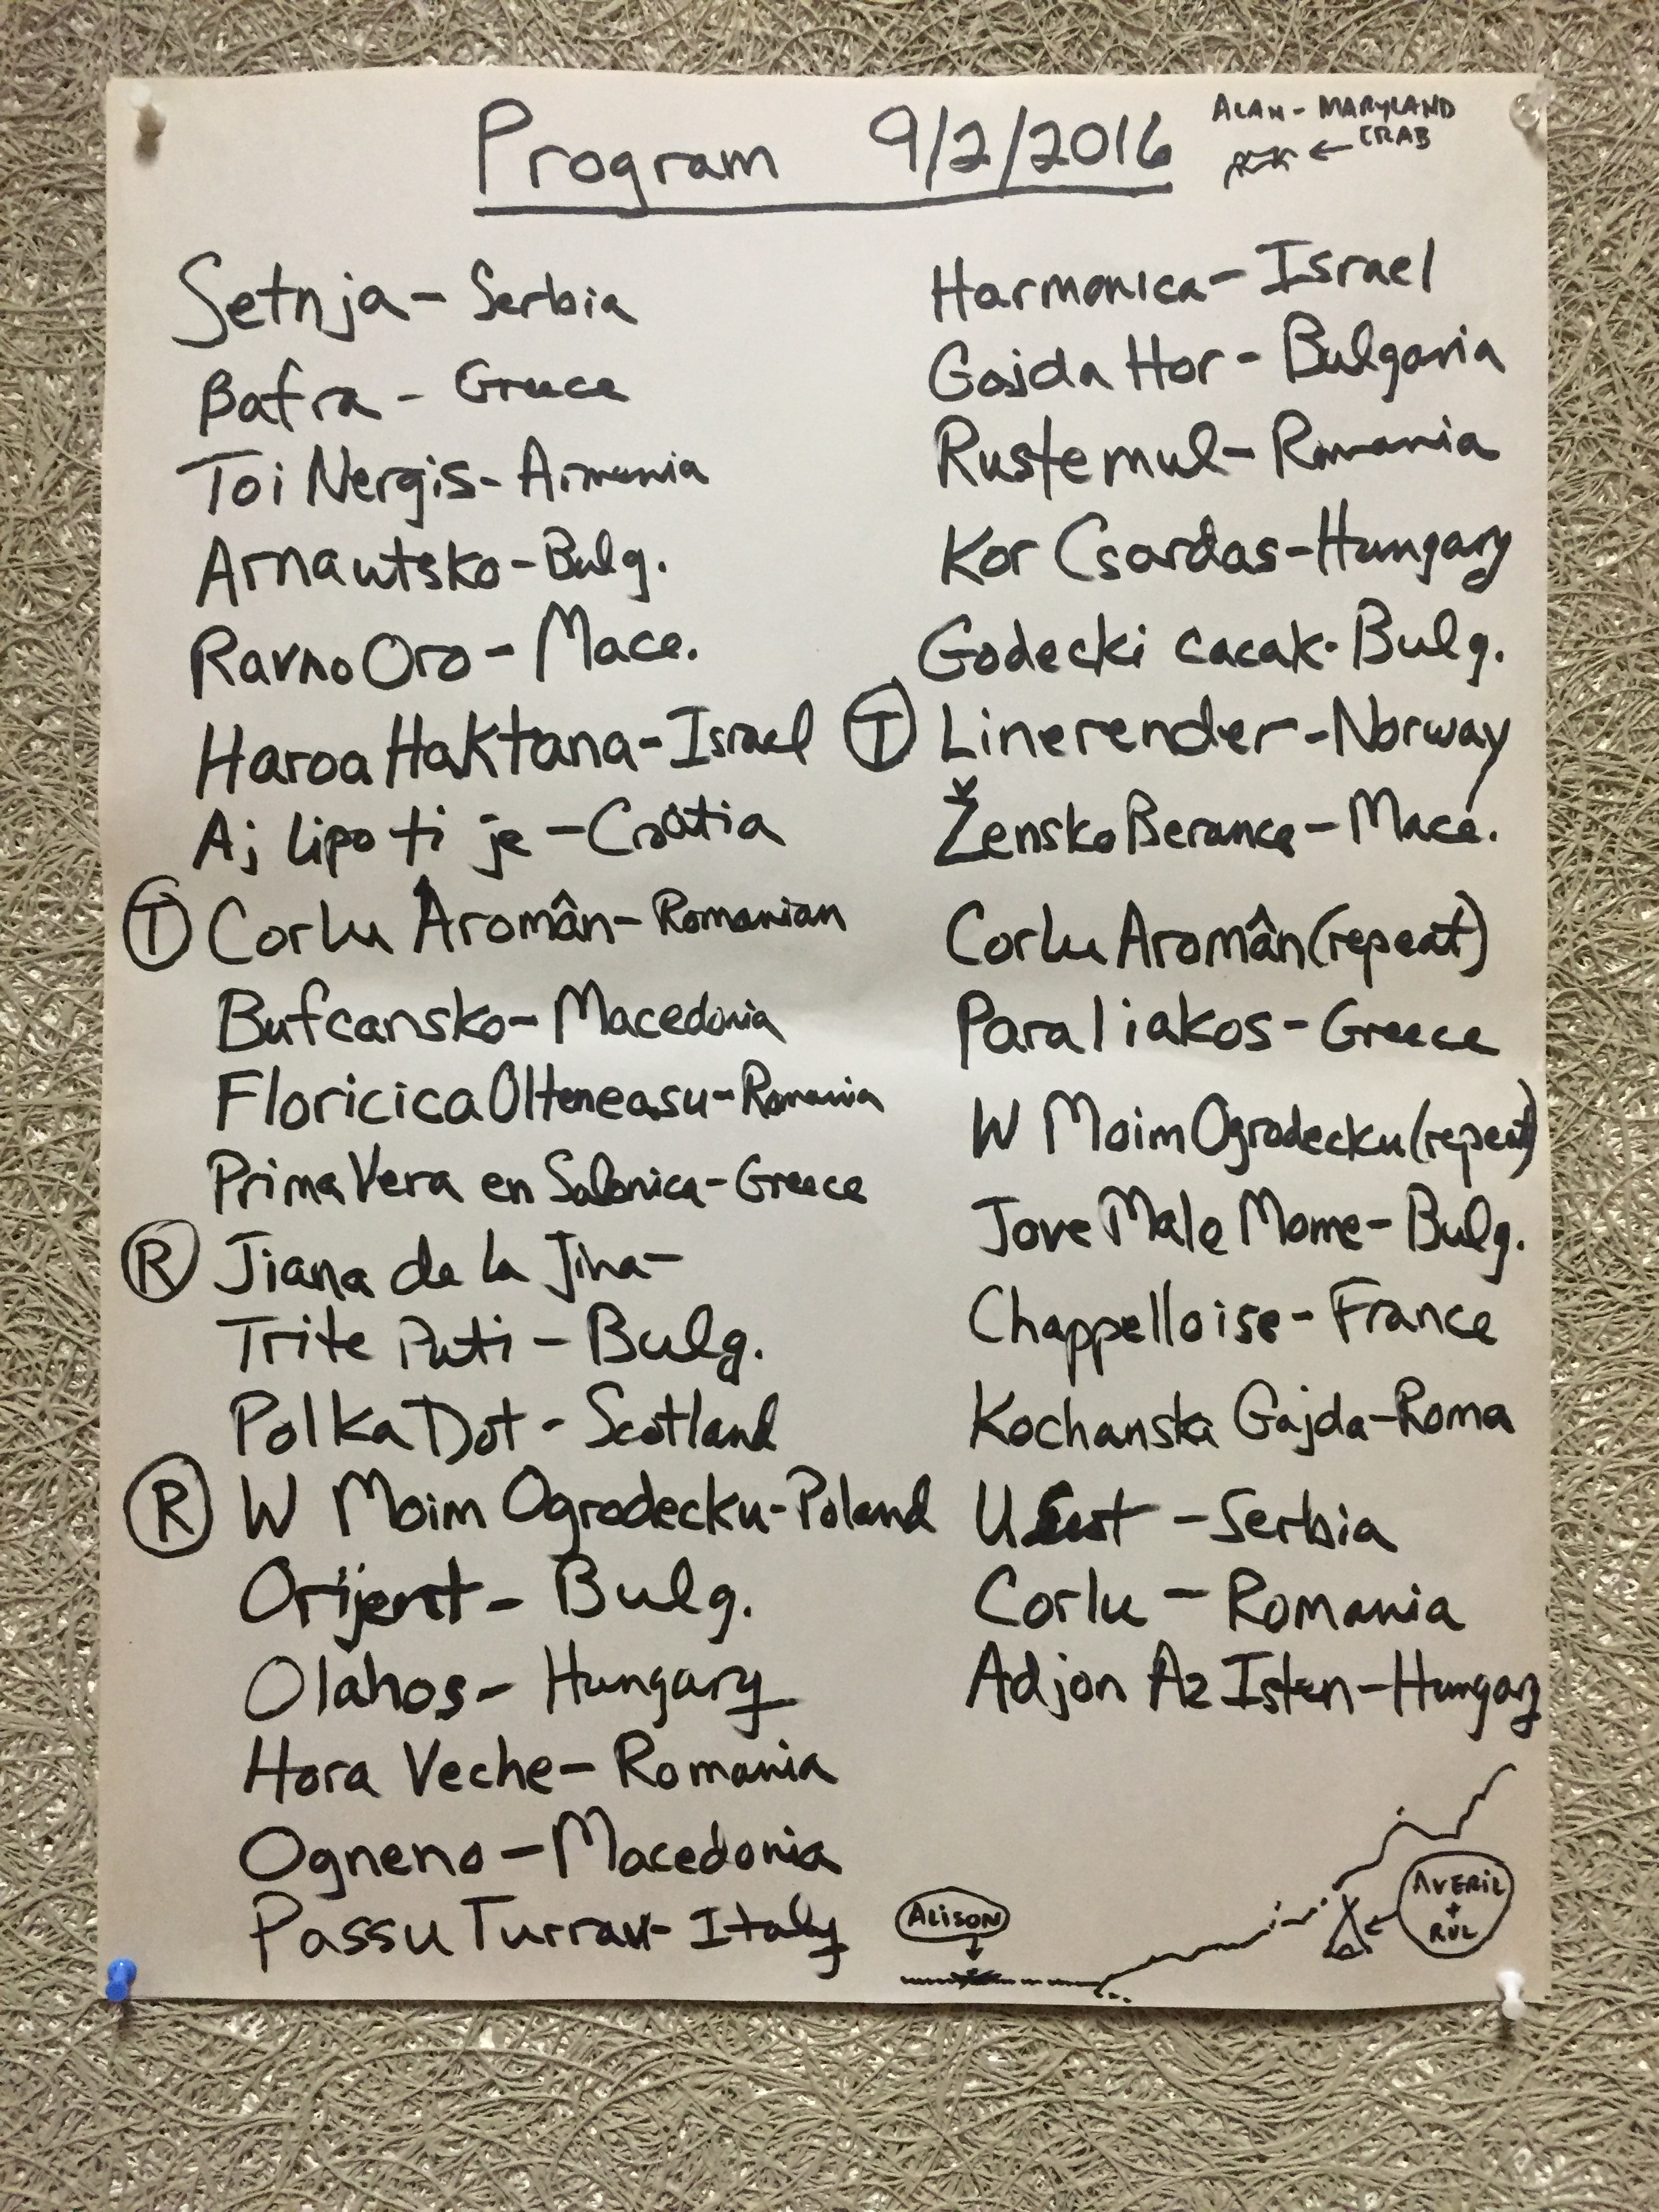 Program 9/2/2016
ALAN - MARYLAND
CRAB
Setnja - Serbia
Bafra - Greece
Toi Nergis - Armenia
Arnautsko - Bulg.
Ravno Oro - Mace.
Haroa Haktana - Israel
Aj Lipo ti je - Croatia
T Corlu Aromân - Romanian
Bufcansko - Macedonia
Floricica Olteneasu - Romania
Prima Vera en Salonica - Greece
R Jiana de la Jina -
Trite Puti - Bulg.
Polka Dot - Scotland
R W Moim Ogrodecku - Poland
Orijent - Bulg.
Olahos - Hungary
Hora Veche - Romania
Ogneno - Macedonia
Passu Turrau - Italy
Harmonica - Israel
Gajda Hor - Bulgaria
Rustemul - Romania
Kor Csardas - Hungary
Godecki cacak - Bulg.
T Linerender - Norway
Žensko Berance - Mace.
Corlu Aromân (repeat)
Paraliakos - Greece
W Moim Ogrodecku (repeat)
Jove Male Mome - Bulg.
Chappelloise - France
Kochanska Gajda - Roma
U Sest - Serbia
Corlu - Romania
Adjon Az Isten - Hungary
ALISON
AVERIL
+